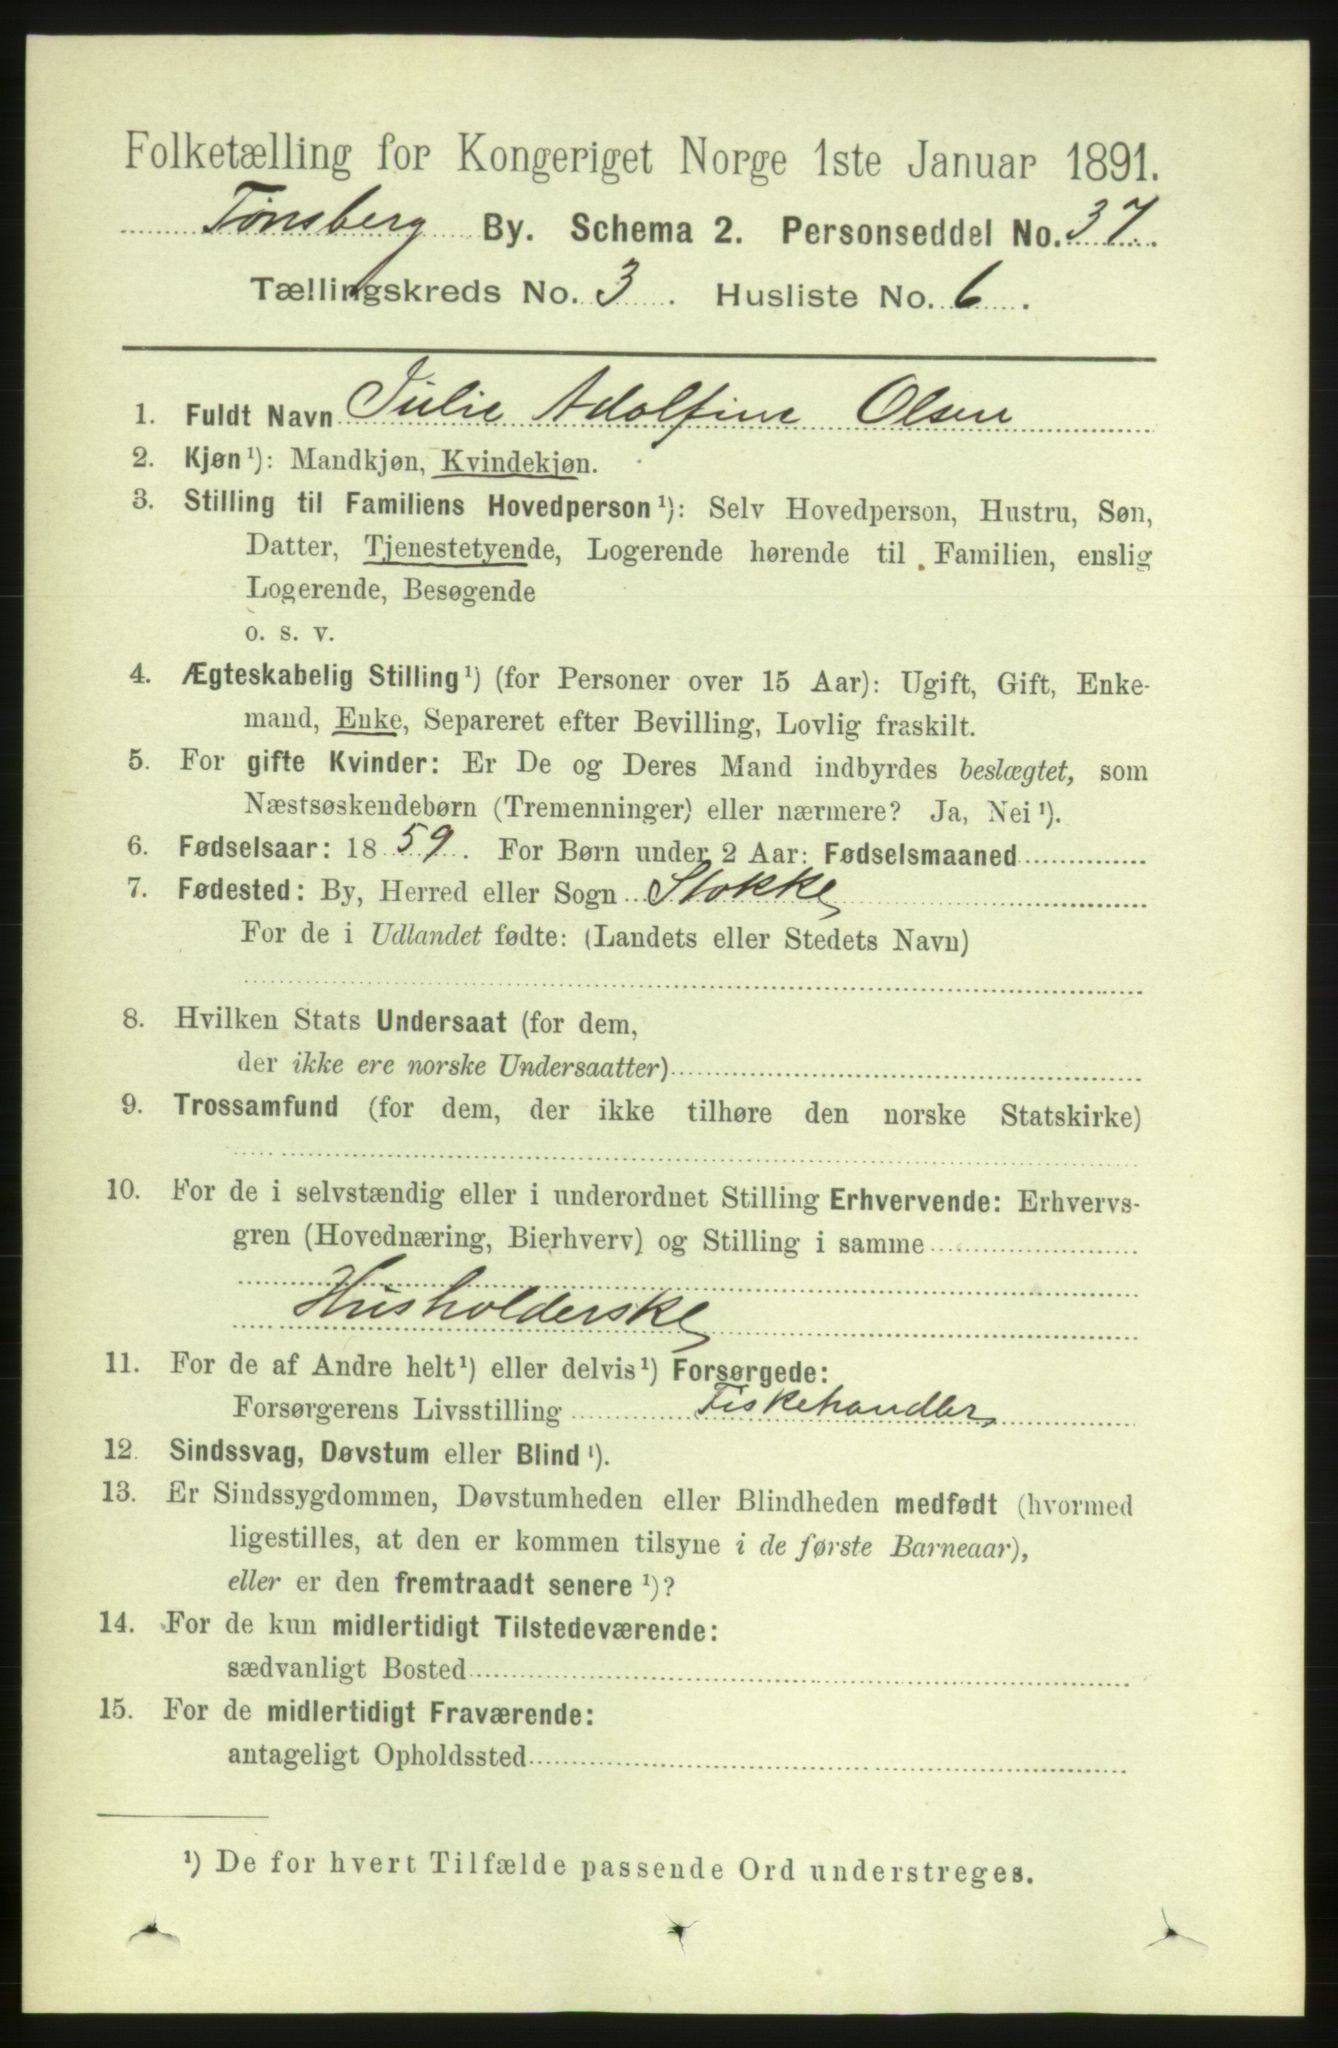 Folketælling for Kongeriget Norge 1ste Januar 1891.
Tønsberg By. Schema 2. Personseddel No. 37.
Tællingskreds No. 3. Husliste No. 6.
1. Fuldt Navn Julie Adolfine Olsen
2. Kjøn¹): Mandkjøn, Kvindekjøn.
3. Stilling til Familiens Hovedperson¹): Selv Hovedperson, Hustru, Søn,
Datter, Tjenestetyende, Logerende hørende til Familien, enslig
Logerende, Besøgende
o. s. v.
4. Ægteskabelig Stilling¹) (for Personer over 15 Aar): Ugift, Gift, Enke-
mand, Enke, Separeret efter Bevilling, Lovlig fraskilt.
5. For gifte Kvinder: Er De og Deres Mand indbyrdes beslægtet, som
Næstsøskendebørn (Tremenninger) eller nærmere? Ja, Nei¹).
6. Fødselsaar: 1859. For Børn under 2 Aar: Fødselsmaaned
7. Fødested: By, Herred eller Sogn Stokke
For de i Udlandet fødte: (Landets eller Stedets Navn)
8. Hvilken Stats Undersaat (for dem,
der ikke ere norske Undersaatter)
9. Trossamfund (for dem, der ikke tilhøre den norske Statskirke)
10. For de i selvstændig eller i underordnet Stilling Erhvervende: Erhvervs-
gren (Hovednæring, Bierhverv) og Stilling i samme
Husholderske
11. For de af Andre helt¹) eller delvis¹) Forsørgede:
Forsørgerens Livsstilling Fiskehandler
12. Sindssvag, Døvstum eller Blind¹).
13. Er Sindssygdommen, Døvstumheden eller Blindheden medfødt (hvormed
ligestilles, at den er kommen tilsyne i de første Barneaar),
eller er den fremtraadt senere¹)?
14. For de kun midlertidigt Tilstedeværende:
sædvanligt Bosted
15. For de midlertidigt Fraværende:
antageligt Opholdssted
¹) De for hvert Tilfælde passende Ord understreges.